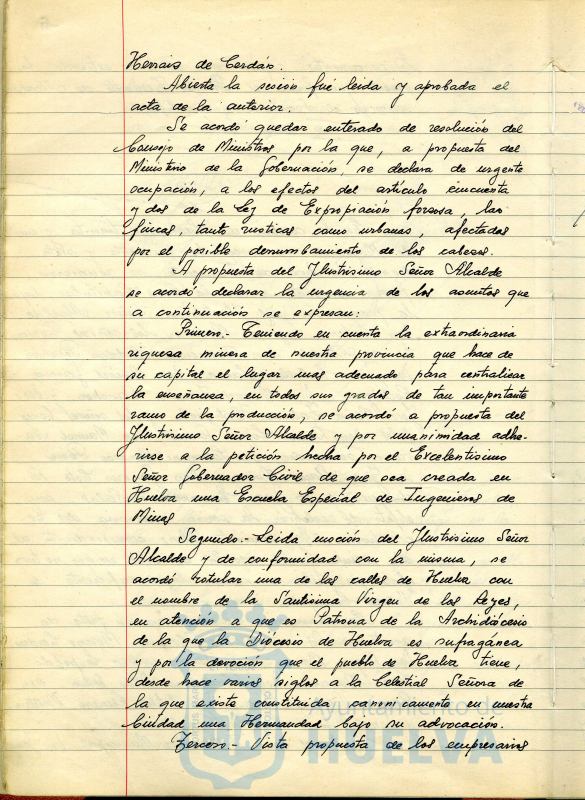 Herraiz de Cerdán.
Abierta la sesión fué leida y aprobada el
acta de la anterior.
Se acordó quedar enterado de resolución del
Consejo de Ministros por la que, a propuesta del
Ministerio de la Gobernación, se declara de urgente
ocupación, a los efectos del artículo cincuenta
y dos de la Ley de Expropiación forzosa, las
fincas, tanto rusticas como urbanas, afectadas
por el posible derrumbamiento de los cabezos.
A propuesta del Ilustrisimo Señor Alcalde
se acordó declarar la urgencia de los asuntos que
a continuación se expresan:
Primero.- Teniendo en cuenta la extraordinaria
riqueza minera de nuestra provincia que hace de
su capital el lugar mas adecuado para centralizar
la enseñanza, en todos sus grados de tan importante
ramo de la producción, se acordó a propuesta del
Ilustrisimo Señor Alcalde y por unanimidad adhe-
rirse a la petición hecha por el Excelentisimo
Señor Gobernador Civil de que sea creada en
Huelva una Escuela Especial de Ingenieros de
Minas
Segundo.- Leida moción del Ilustrisimo Señor
Alcalde y de conformidad con la misma, se
acordó rotular una de las calles de Huelva con
el nombre de la Santisima Virgen de los Reyes,
en atención a que es Patrona de la Archidiócesis
de la que la Diócesis de Huelva es sufragánea
y por la devoción que el pueblo de Huelva tiene,
desde hace varios siglos a la Celestial Señora de
la que existe constituida canonicamente en nuestra
Ciudad una Hermandad bajo su advocación.
Tercero.- Vista propuesta de los empresarios
Ayuntamiento de
HUELVA